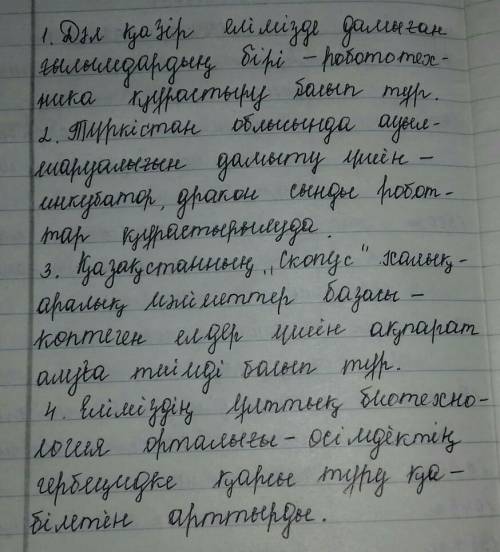 1. Дәл қазір елімізде дамыған
ғылымдардың бірі – робототех-
ника құрастыру болып тұр.
2. Түркістан облысында ауыл-
шаруалығын дамыту үшін –
инкубатор, дракон сынды робот-
тар құрастырылуда.
3. Қазақстанның „Скопус" халық-
аралық мәліметтер базасы –
көптеген елдер үшін ақпарат
алуға тиімді болып тұр.
4. Еліміздің ұлттық биотехно-
логия орталығы – өсімдіктің
гербецидке қарсы тұру қа-
білетін арттырды.